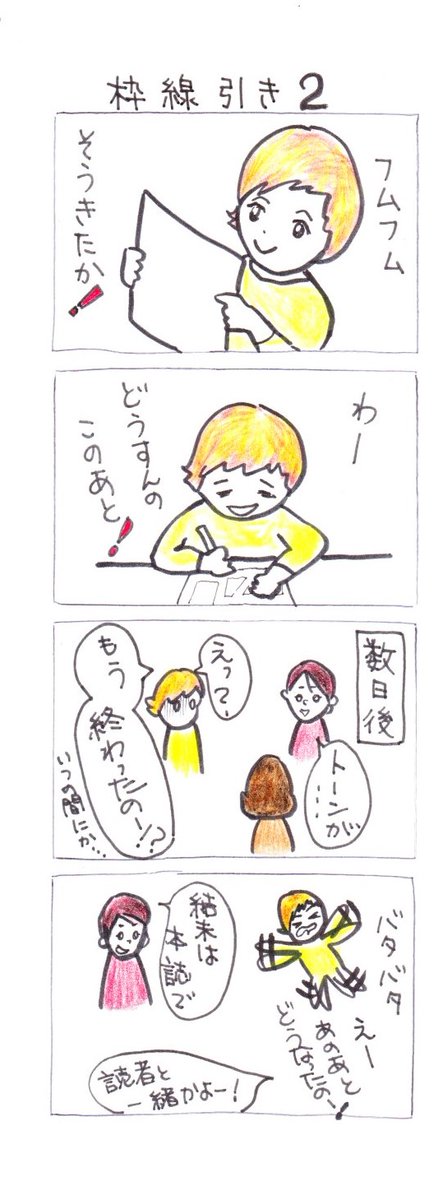 枠線引き2
フムフム
そうきたか!
わー
どうすんの
このあと!
数日後
トーンが…
えっ?
もう
終わったのー!?
いつの間にか…
バタバタ
えー
あのあと
どうなったのー!
結末は
本誌で
読者と
一緒かよー!